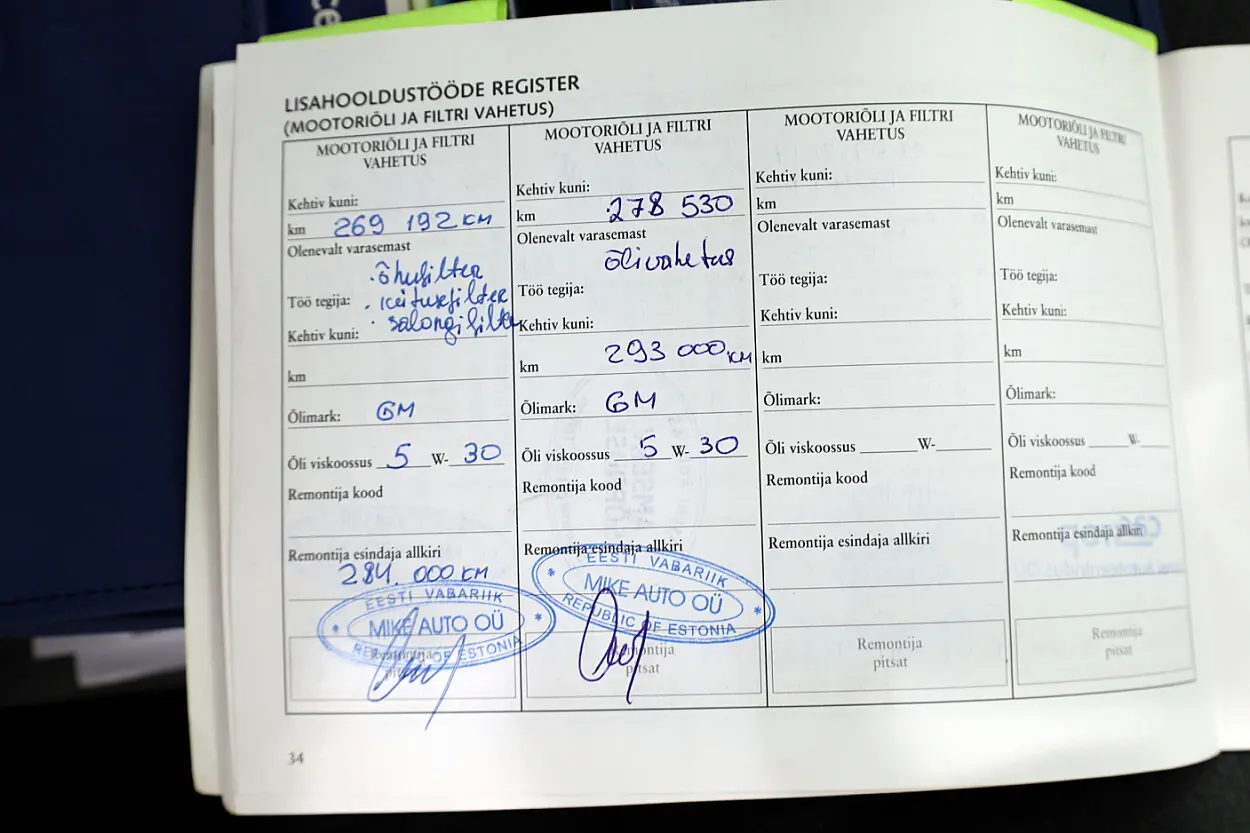 LISAHOOLDUSTÖÖDE REGISTER
(MOOTORIÕLI JA FILTRI VAHETUS)
MOOTORIÕLI JA FILTRI
VAHETUS
Kehtiv kuni:
km 269 192 KM
Olenevalt varasemast
· õhufilter
Töö tegija: · keitusefilter
Kehtiv kuni: · salongifilter
km
Õlimark: GM
Õli viskoossus 5 W- 30
Remontija kood
Remontija esindaja allkiri
284. 000 KM
EESTI VABARIIK
MIKE AUTO OÜ
REPUBLIC OF ESTONIA
Remontija
pitsat
MOOTORIÕLI JA FILTRI
VAHETUS
Kehtiv kuni:
km 278 530
Olenevalt varasemast
õlivahetus
Töö tegija:
Kehtiv kuni:
km 293 000 KM
Õlimark: GM
Õli viskoossus 5 W- 30
Remontija kood
Remontija esindaja allkiri
EESTI VABARIIK
MIKE AUTO OÜ
REPUBLIC OF ESTONIA
Remontija
pitsat
MOOTORIÕLI JA FILTRI
VAHETUS
Kehtiv kuni:
km
Olenevalt varasemast
Töö tegija:
Kehtiv kuni:
km
Õlimark:
Õli viskoossus ______W-______
Remontija kood
Remontija esindaja allkiri
Remontija
pitsat
MOOTORIÕLI JA FILTRI
VAHETUS
Kehtiv kuni:
km
Olenevalt varasemast
Töö tegija:
Kehtiv kuni:
km
Õlimark:
Õli viskoossus ______W-____
Remontija kood
Remontija esindaja allkiri
Remontija
pitsat
34